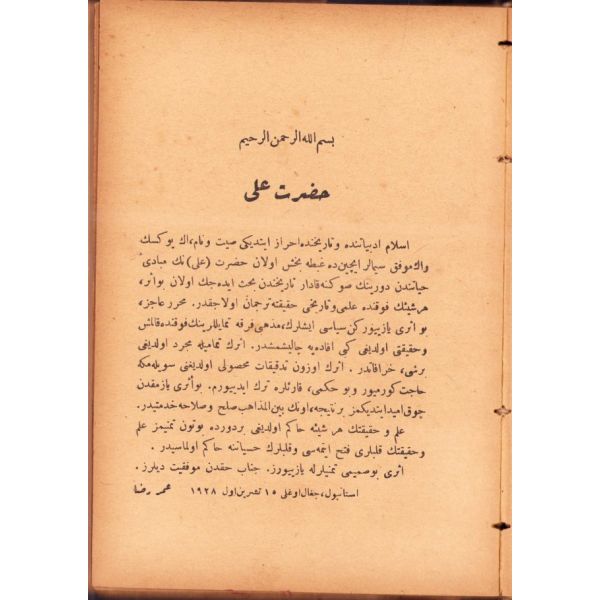 بسم الله الرحمن الرحيم
حضرت على
اسلام ادبياتنده و تاريخنده احراز ايتديكى صيت و نام، اك يوكسك
واك موفق سيمالر ايچين ده غبطه بخش اولان حضرت (على) نك مبادىء
حياتندن دورينك صوكنه قادار تاريخندن بحث ايده جك اولان بو اثر،
هر شيئك فوقنده علمى و تاريخى حقيقته ترجمان اولاجقدر. محرر عاجز،
بو اثرى يازييوركن سياسى ايشلرك، مذهبى فرقه تمايللرينك فوقنده قالمش
و حقيقتى اولديغى كبى افاده يه چاليشمشدر. اثرك تماميله مجرد اولديغى
برشى، خرافاتدر. اثرك اوزون تدقيقات محصولى اولديغنى سويله مكه
حاجت كورميور و بو حكمى، قارئلره ترك ايدييورم. بو اثرى يازمقدن
چوق اميد ايتديكمز برنتيجه، اونك بين المذاهب صلح و صلاحه خدمتيدر.
علم و حقيقتك هر شيئه حاكم اولديغى بردورده بوتون تمنيمز علم
و حقيقتك قلبلرى فتح ايتمه سى و قلبلرك حسياتنه حاكم اولماسيدر.
اثرى بو صميمى تمنيلرله يازييورز. جناب حقدن موفقيت ديلرز.
استانبول، جغال اوغلى ١٥ تشرين اول ١٩٢٨ عمر رضا